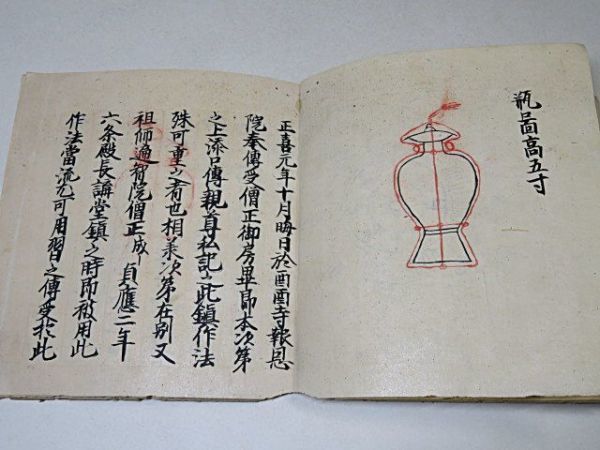 瓶啚高五寸
正喜元年十月晦日於酉酉寺報恩
院奉傳受僧正御房畢即本次第
之上添口傳親尊私記之此鎮作法
殊可重之者也相承次第在別又
祖師遍智院僧正成 貞應二年
六条殿長講堂鎮之時即被用此
作法當流尤可用習之傳受於此